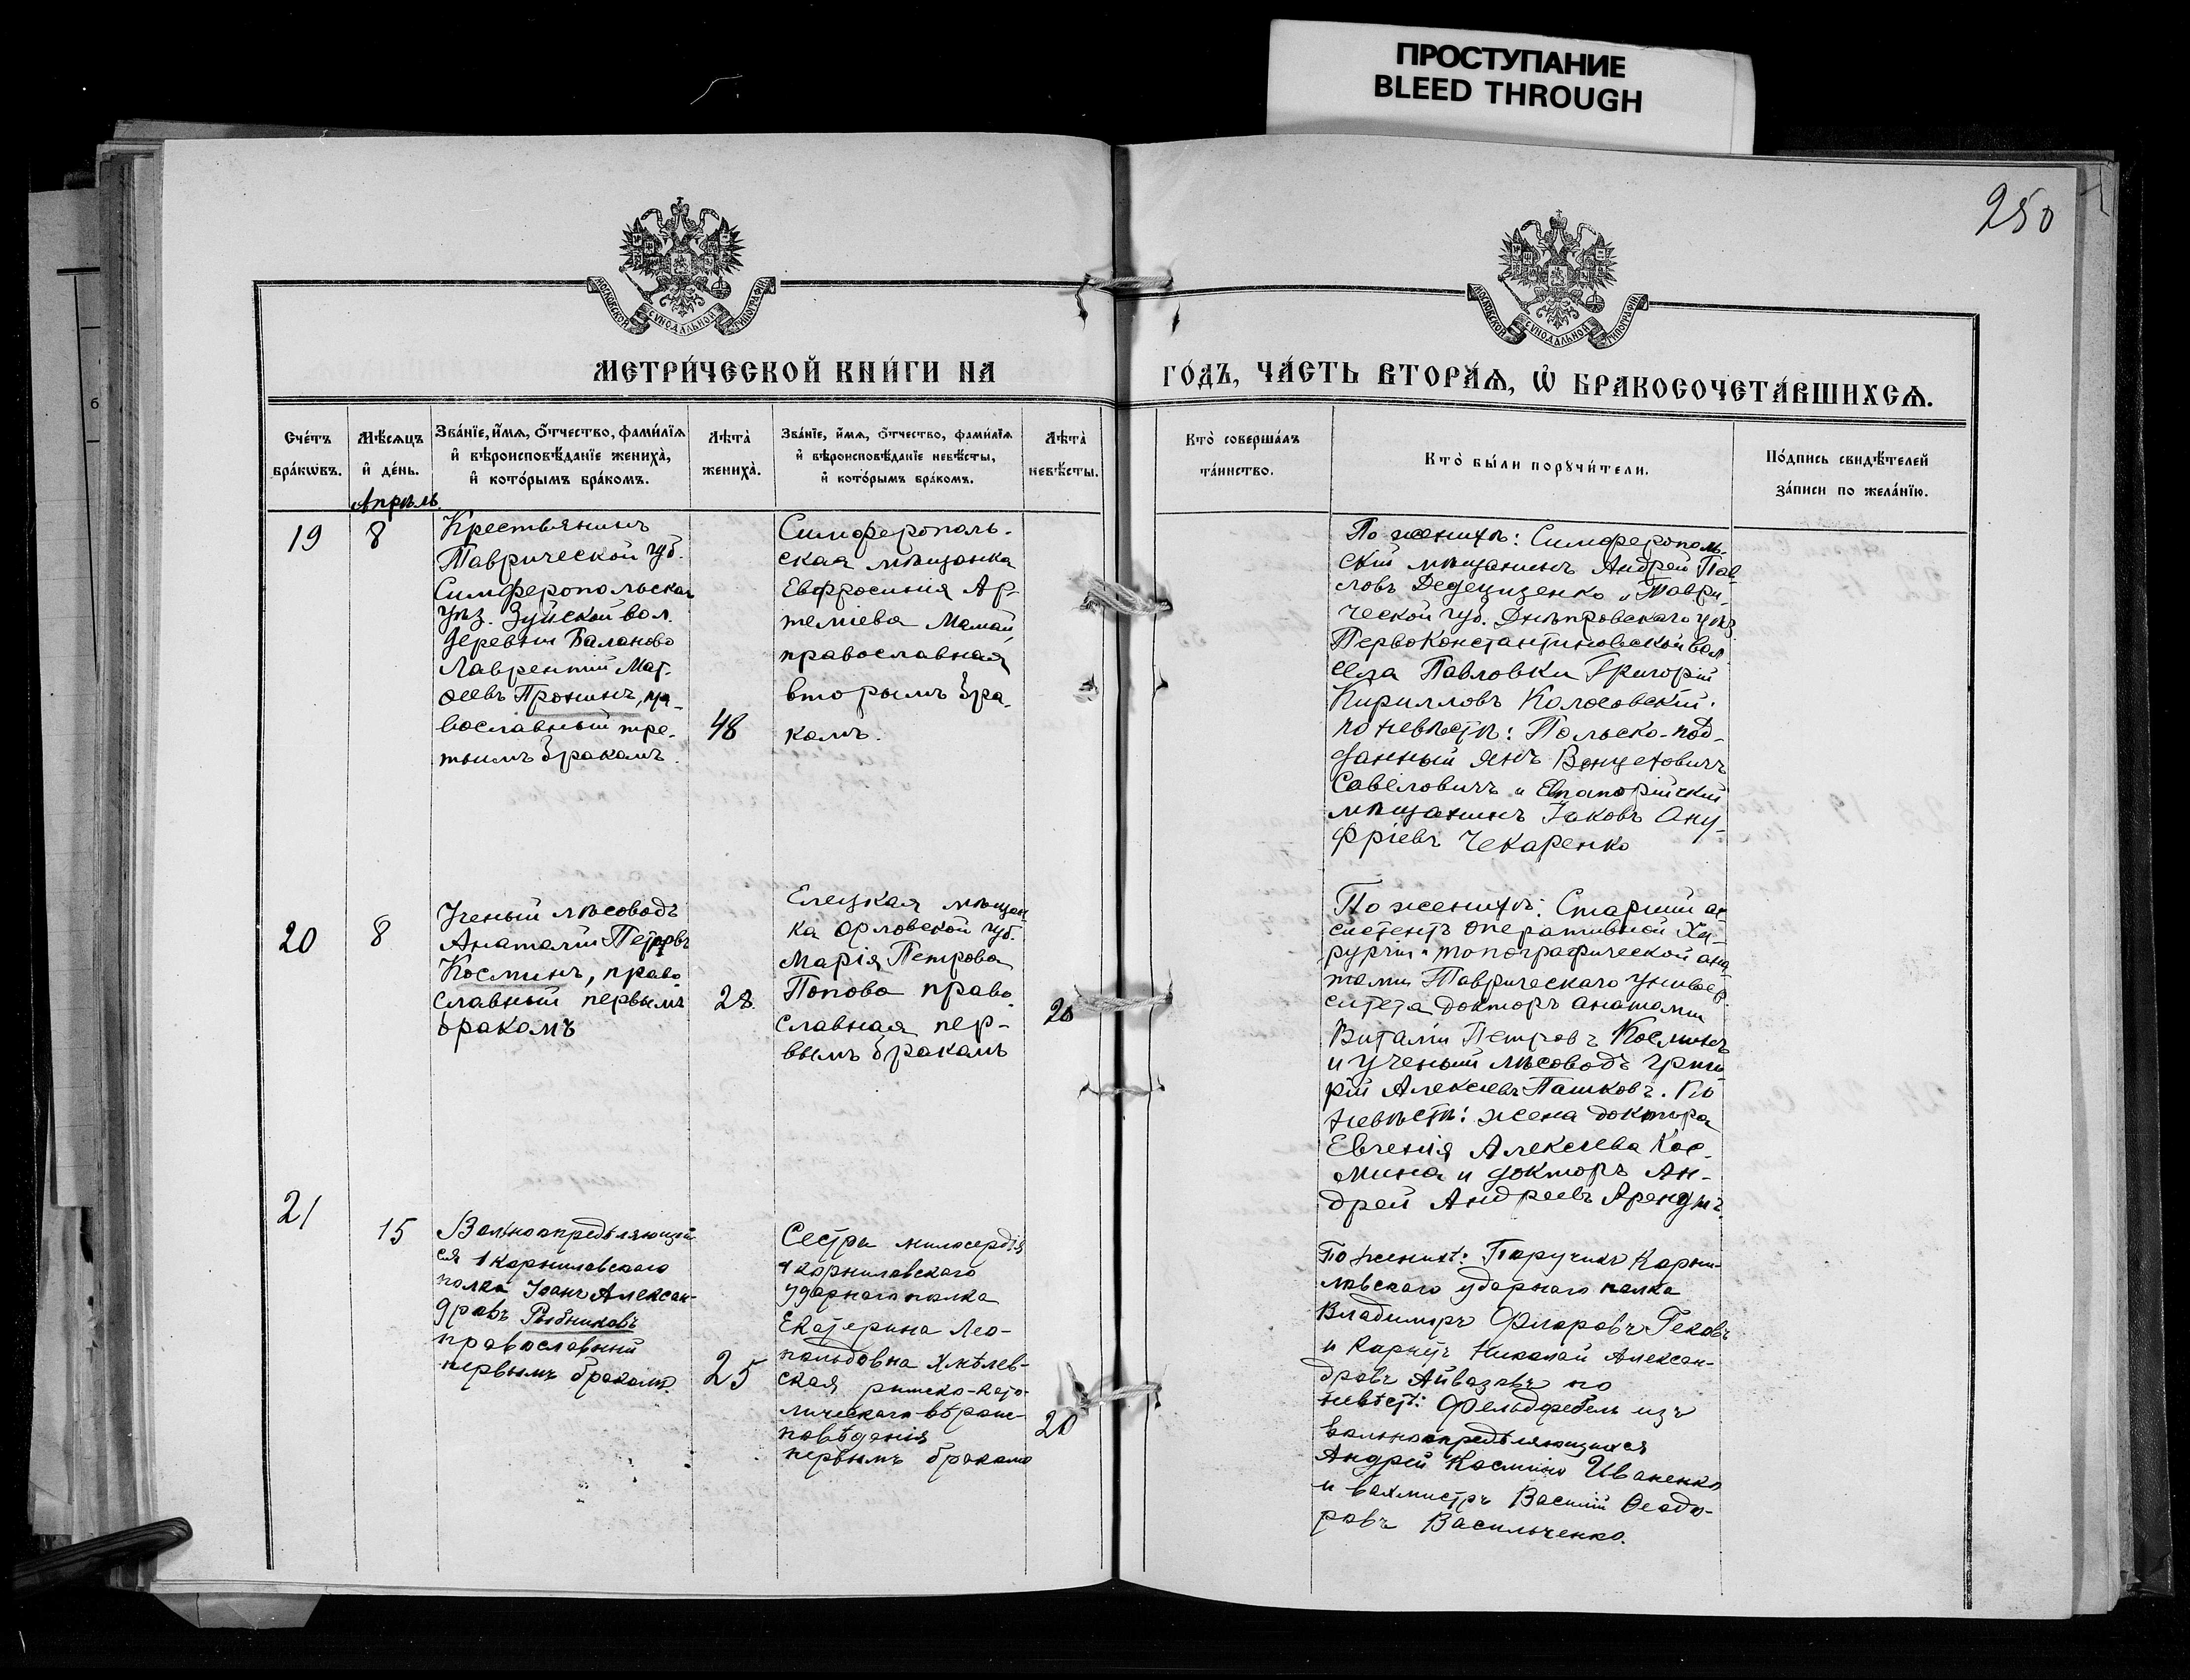 ПРОСТУПАНИЕ
BLEED THROUGH
250
МОСКОВСКОЙ СѴНОДАЛЬНОЙ ТИПОГРАФІИ
МОСКОВСКОЙ СѴНОДАЛЬНОЙ ТИПОГРАФІИ
МЕТРИ́ЧЕСКОЙ КНИ́ГИ НА
ГО́ДЪ, ЧА́СТЬ ВТОРА́Ѧ, Ѡ҆ БРАКОСОЧЕТА́ВШИХСѦ.
Сче́тъ
бра́кѡвъ.
Мѣ́сяцъ
и҆ де́нь.
Зва́нїе, и҆́мя, ѻ҆́тчество, фами́лїя
и҆ вѣроисповѣ́данїе жениха̀,
и҆ кото́рымъ бра́комъ.
Лѣта̀
жениха̀.
Зва́нїе, и҆́мя, ѻ҆́тчество, фами́лїя
и҆ вѣроисповѣ́данїе невѣ́сты,
и҆ кото́рымъ бра́комъ.
Лѣта̀
невѣ́сты.
Кто̀ соверша́лъ
та́инство.
Кто̀ бы́ли порꙋчи́тели.
По́дпись свидѣ́телей
за́писи по жела́нїю.
Апрѣль.
19
8
Крестьянинъ
Таврической губ.
Симферопольскаго
уѣз. Зуйской вол.
деревни Баланово
Лаврентий Мат-
ѳеевъ Пронинъ, пра-
вославный тре-
тьимъ бракомъ.
48
Симферополь-
ская мѣщанка
Евфросинія Ар-
теміева Мамай,
православная
вторымъ бра-
комъ.
По женихѣ: Симферополь-
скій мѣщанинъ Андрей Пав-
ловъ Дедециценко и Таври-
ческой губ. Днѣпровскаго уѣз.
Первоконстантиновской вол.
села Павловки Григорій
Кирилловъ Колосовскій.
по невѣстѣ: Польско-под-
данный Янъ Венцетовичъ
Савеловичъ и Евпаторійскій
мѣщанинъ Іаковъ Ону-
фріевъ Чекаренко
20
8
Ученый лѣсоводъ
Анатолій Петровъ
Косминъ, право-
славный первымъ
бракомъ
28.
Елецкая мѣщан-
ка Орловской губ.
Марія Петрова
Попова право-
славная пер-
вымъ бракомъ
20
По женихѣ: Старшій ас-
систентъ оперативной Хи-
рургіи и топографической ана-
томіи Таврическаго Универ-
ситета Докторъ анатоміи
Виталій Петровъ Косминъ
и ученый лѣсоводъ Григо-
рій Алексѣевъ Пашковъ. По
невѣстѣ: жена доктора
Евгенія Алексѣева Кос-
мина и докторъ Ан-
дрей Андреевъ Арендтъ.
21
15
Вольноопредѣляющій-
ся 1 Корниловскаго
полка Іоанъ Алексан-
дровъ Рыбниковъ
православный
первымъ бракомъ.
25
Сестра милосердія
1 Корниловскаго
ударнаго полка
Екатерина Лео-
польдовна Хмѣлев-
ская римско-като-
лическаго вѣроис-
повѣденія
первымъ бракомъ
20
По женихѣ: Поручикъ Корни-
ловскаго ударнаго полка
Владиміръ Флоровъ Гековъ
и Корнетъ Николай Алексан-
дровъ Айвазовъ по
невѣстѣ: Фельдфебель изъ
вольноопредѣляющихся
Андрей Косминъ Иваненко
и вахмистръ Василій Ѳеодо-
ровъ Васильченко.